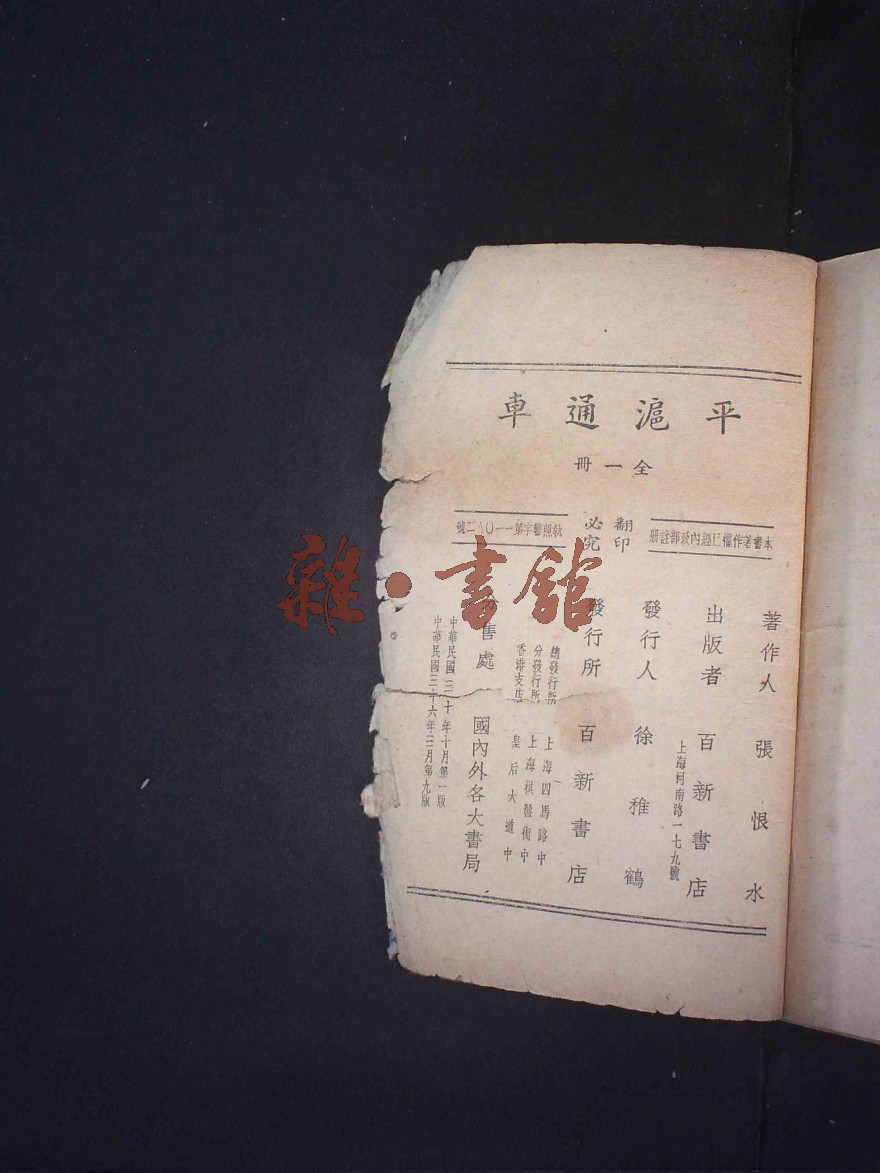 平滬通車
全一冊
本書著作權已經內政部註册
翻印
必究
執照警字第一一〇八二號
著作人 張恨水
出版者 百新書店
上海河南路一七九號
發行人 徐稚鶴
發行所 百新書店
總發行所 上海四馬路中
分發行所 上海棋盤街中
香港支店 皇后大道中
售處 國內外各大書局
中華民國三十年十月第一版
中華民國三十六年三月第九版
雜·書館